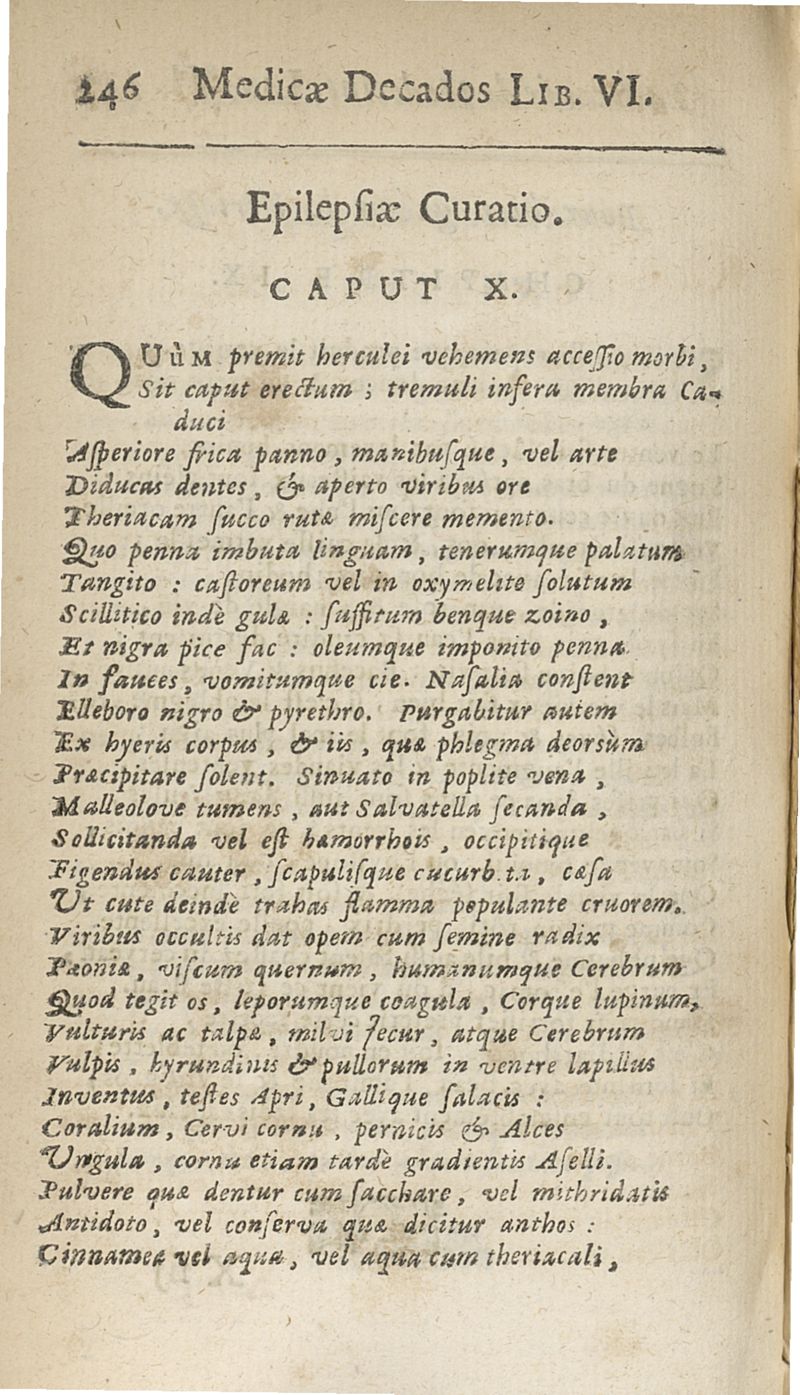 246 Medicæ Decados LIB. VI.
Epilepſiæ Curatio.
CAPUT X.
QUùM premit herculei vehemens acceſſio morbi,
Sit caput erectum ; tremuli infera membra Ca-
duci
Aſperiore frica panno, manibuſque, vel arte
Diducas dentes, & aperto viribus ore
Theriacam ſucco rutæ miſcere memento.
Quo penna imbuta linguam, tenerumque palatum
Tangito : caſtoreum vel in oxymelite ſolutum
Scillitico indè gulæ : ſuffitum benque zoino,
Et nigra pice fac : oleumque imponito penna
In fauces, vomitumque cie. Naſalia conſtent
Elleboro nigro & pyrethro. Purgabitur autem
Ex hyeris corpus, & iis, quæ phlegma deorsùm
Præcipitare ſolent. Sinuato in poplite vena,
Malleolove tumens, aut Salvatella ſecanda,
Sollicitanda vel eſt hæmorrhois, occipitique
Figendus cauter, ſcapuliſque cucurb.ta, cæſa
Ut cute deindè trahas flamma populante cruorem.
Viribus occultis dat opem cum ſemine radix
Pæoniæ, viſcum quernum, humanumque Cerebrum
Quod tegit os, leporumque coagula, Corque lupinum,
Vulturis ac talpæ, milvi Jecur, atque Cerebrum
Vulpis, hyrundinis & pullorum in ventre lapillus
Inventus, teſtes Apri, Gallique ſalacis :
Coralium, Cervi cornu, pernicis & Alces
Ungula, cornu etiam tardè gradientis Aſelli.
Pulvere quæ dentur cum ſacchare, vel mithridatis
Antidoto, vel conſerva quæ dicitur anthos :
Cinnamea vel aqua, vel aqua cum theriacali,